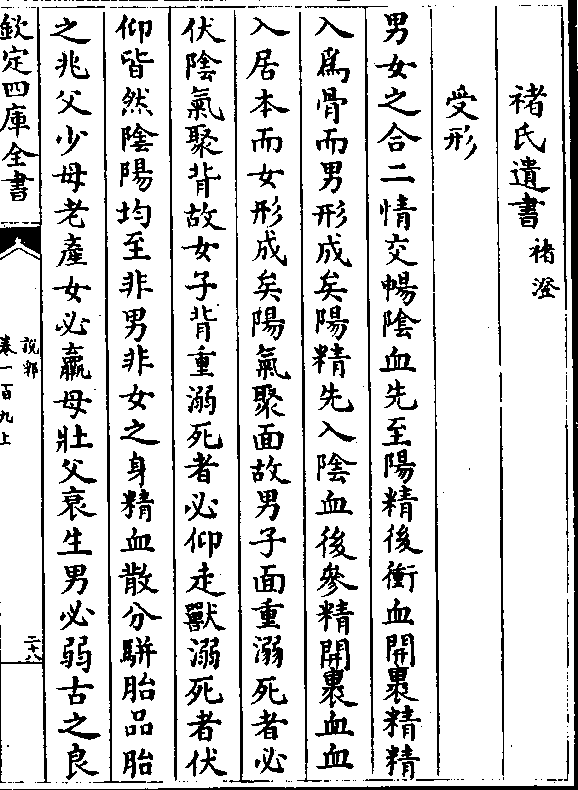 褚氏遺書 褚澄
受形
男女之合二情交暢陰血先至陽精後衝血開裹精精
入為骨而男形成矣陽精先入陰血後參精開裹血血
入居本而女形成矣陽氣聚面故男子面重溺死者必
伏陰氣聚背故女子背重溺死者必仰走獸溺死者伏
仰皆然陰陽均至非男非女之身精血散分駢胎品胎
之兆父少母老產女必羸母壯父衰生男必弱古之良
欽定四庫全書
說郛
卷一百九上
二十八